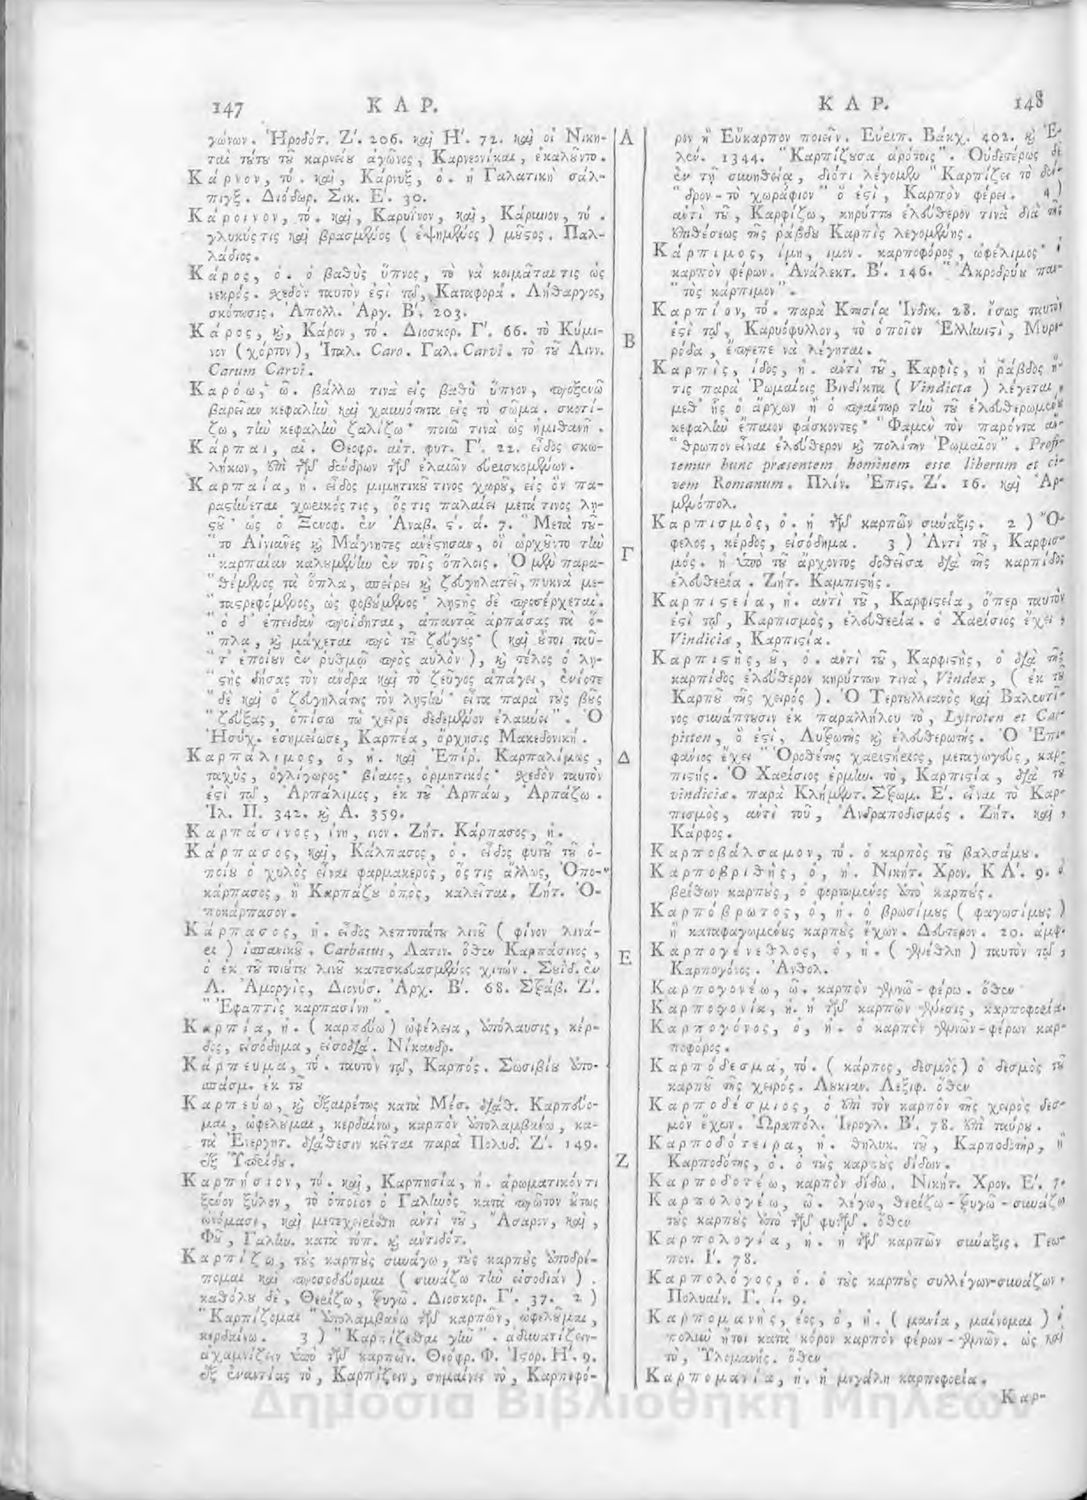 147 ΚΑΡ.
γώνων. Ἡροδότ. Ζ΄. 206. καὶ Η΄. 72. καὶ οἱ Νικη-
ταὶ τούτου τοῦ καρνείου ἀγῶνος, Καρνεονίκαι, ἐκαλοῦντο.
Κάρνον, τό. καὶ, Κάρνυξ, ὁ. ἡ Γαλατικὴ σάλ-
πιγξ. Διόδωρ. Σικ. Ε΄. 30.
Κάροινον, τό. καὶ, Καρύϊνον, καὶ, Κάρυινον, τό.
γλυκύς τις καὶ βρασμένος ( ἑψημένος ) μοῦστος. Παλ-
λάδιος.
Κάρος, ὁ. ὁ βαθὺς ὕπνος, τὸ νὰ κοιμᾶταί τις ὡς
νεκρός. σχεδὸν ταυτὸν ἐστὶ τῷ, Καταφορά. Λήθαργος,
σκότωσις. Ἀπολλ. Ἀργ. Β΄. 203.
Κάρος, καὶ, Κάρον, τό. Διοσκορ. Γ΄. 66. τὸ Κύμι-
νον ( χόρτον ), Ἰταλ. Caro. Γαλ. Carvi. τὸ τοῦ Λινν.
Carum Carvi.
Καρόω, ῶ. βάλλω τινὰ εἰς βαθὺ ὕπνον, προξενῶ
βαρεῖαν κεφαλὴν καὶ χαυνότητα εἰς τὸ σῶμα. σκοτί-
ζω, τὴν κεφαλὴν ζαλίζω· ποιῶ τινὰ ὡς ἡμιθανῆ.
Κάρπαι, αἱ. Θεοφρ. αἰτ. φυτ. Γ΄. 22. εἶδος σκω-
λήκων, ἐπὶ τῶν δένδρων τῶν ἐλαιῶν εὑρισκομένων.
Καρπαία, ἡ. εἶδος μιμητικοῦ τινος χοροῦ, εἰς ὃν πα-
ραστήνεται χωρικός τις, ὅστις παλαίει μετά τινος λῃ-
στοῦ· ὡς ὁ Ξενοφ. ἐν Ἀναβ. ς΄. ά. 7. "Μετὰ τοῦ-
"το Αἰνιᾶνες καὶ Μάγνητες ἀνέστησαν, οἳ ὠρχοῦντο τὴν
"καρπαίαν καλουμένην ἐν τοῖς ὅπλοις. Ὁ μὲν παρα-
"θέμενος τὰ ὅπλα, σπείρει καὶ ζευγηλατεῖ, πυκνὰ με-
"ταστρεφόμενος, ὡς φοβούμενος· λῃστὴς δὲ προσέρχεται.
"ὁ δ' ἐπειδὰν προίδηται, ἀπαντᾷ ἁρπάσας τὰ ὅ-
"πλα, καὶ μάχεται πρὸ τοῦ ζεύγους· ( καὶ οὗτοι ταῦ-
"τ' ἐποίουν ἐν ῥυθμῷ πρὸς αὐλόν ), καὶ τέλος ὁ λῃ-
"στὴς δήσας τὸν ἄνδρα καὶ τὸ ζεῦγος ἀπάγει, ἐνίοτε
"δὲ καὶ ὁ ζευγηλάτης τὸν λῃστὴν· εἶτα παρὰ τοὺς βοῦς
"ζεύξας, ὀπίσω τὼ χεῖρε δεδεμένον ἐλαύνει". Ὁ
Ἡσύχ. ἐσημείωσε, Καρπέα, ὄρχησις Μακεδονική.
Καρπάλιμος, ὁ, ἡ. καὶ Ἐπίρ. Καρπαλίμως,
ταχὺς, ὀγλίγωρος· βίαιος, ὁρμητικός· σχεδὸν ταυτὸν
ἐστὶ τῷ, Ἁρπάλιμος, ἐκ τοῦ Ἁρπάω, Ἁρπάζω.
Ἰλ. Π. 342. καὶ Α. 359.
Καρπάσινος, ίνη, ινον. Ζήτ. Κάρπασος, ἡ.
Κάρπασος, καὶ, Κάλπασος, ὁ. εἶδος φυτοῦ τοῦ ὁ-
ποίου ὁ χυλὸς εἶναι φαρμακερὸς, ὅστις ἄλλως, Ὀπο-
κάρπασος, ἢ Καρπάζου ὀπὸς, καλεῖται. Ζήτ. Ὀ-
ποκάρπασον.
Κάρπασος, ἡ. εἶδος λεπτοτάτου λινοῦ ( φίνον λινά-
ρι ) ἱσπανικοῦ. Carbasus, Λατιν. ὅθεν Καρπάσινος,
ὁ ἐκ τοῦ τοιούτου λινοῦ κατεσκευασμένος χιτών. Σουΐδ. ἐν
Λ. Ἀμοργὶς, Διονύσ. Ἀρχ. Β΄. 68. Στράβ. Ζ΄.
"Ἐφαπτὶς καρπασίνη".
Καρπία, ἡ. ( καρπεύω ) ὠφέλεια, ἀπόλαυσις, κέρ-
δος, εἰσόδημα, εἰσοδία. Νίκανδρ.
Κάρπευμα, τό. ταυτὸν τῷ, Καρπός. Σωσιβίου ἀπο-
σπάσμ. ἐκ τοῦ
Καρπεύω, καὶ ἐξαιρέτως κατὰ Μέσ. διάθ. Καρπεύο-
μαι, ὠφελοῦμαι, κερδαίνω, καρπὸν ἀπολαμβάνω, κα-
τὰ Ἐνεργητ. διάθεσιν κεῖται παρὰ Πολυδ. Ζ΄. 149.
ἐξ Ὑπερίδου.
Καρπήσιον, τό. καὶ, Καρπησία, ἡ. ἀρωματικόν τι
ξερὸν ξύλον, τὸ ὁποῖον ὁ Γαληνὸς κατὰ πρῶτον οὕτως
ὠνόμασε, καὶ μετεχειρίσθη ἀντὶ τοῦ, Ἄσαρον, καὶ,
Φοῦ, Γαλην. κατὰ τόπ. καὶ ἀντιδότ.
Καρπίζω, τοὺς καρποὺς συνάγω, τοὺς καρποὺς ἀποδρέ-
πομαι καὶ προσοδεύομαι ( συνάζω τὴν εἰσοδιάν ).
καθόλου δὲ, Θερίζω, τρυγῶ. Διοσκορ. Γ΄. 37. 2 )
"Καρπίζομαι" ἀπολαμβάνω τῶν καρπῶν, ὠφελοῦμαι,
κερδαίνω. 3 ) "Καρπίζεσθαι γῆν". ἀδυνατίζειν-
ἀχαμνίζειν ὑπὸ τῶν καρπῶν. Θεόφρ. Φ. Ἱστορ. Η΄. 9.
ἐξ ἐναντίας τὸ, Καρπίζειν, σημαίνει τὸ, Καρποφό-
Α
Β
Γ
Δ
Ε
Ζ
ΚΑΡ. 148
ρον ἢ Εὔκαρπον ποιεῖν. Εὐριπ. Βάκχ. 402. καὶ Ἑ-
λέν. 1344. "Καρπίζουσα ἀρότοις". Οὐδετέρως δὲ
ἐν τῇ συνηθείᾳ, διότι λέγομεν "Καρπίζει τὸ δέν-
"δρον - τὸ χωράφιον" ὅ ἐστὶ, Καρπὸν φέρει. 4 )
ἀντὶ τοῦ, Καρφίζω, κηρύττω ἐλεύθερον τινὰ διὰ τῆς
ἐπιθέσεως τῆς ῥάβδου Καρπὶς λεγομένης.
Κάρπιμος, ίμη, ιμον. καρποφόρος, ὠφέλιμος·
καρπὸν φέρων. Ἀνάλεκτ. Β΄. 146. "Ἀκροδρύου παν-
"τὸς κάρπιμον".
Καρπίον, τό. παρὰ Κτησίᾳ Ἰνδικ. 28. ἴσως ταυτὸν
ἐστὶ τῷ, Καρυόφυλλον, τὸ ὁποῖον Ἑλληνιστὶ, Μυρι-
ρόδα, ἔπρεπε νὰ λέγηται.
Καρπὶς, ίδος, ἡ. ἀντὶ τοῦ, Καρφὶς, ἡ ῥάβδος ἥ-
τις παρὰ Ῥωμαίοις Βινδίκτα ( Vindicta ) λέγεται,
μεθ' ἧς ὁ ἄρχων ἢ ὁ πραίτωρ τὴν τοῦ ἐλευθερωμένου
κεφαλὴν ἔπαιον φάσκοντες· "Φαμὲν τὸν παρόντα ἄν-
"θρωπον εἶναι ἐλεύθερον καὶ πολίτην Ῥωμαῖον". Profi-
temur hunc præsentem hominem esse liberum et ci-
vem Romanum. Πλίν. Ἐπις. Ζ΄. 16. καὶ Ἁρ-
μενόπολ.
Καρπισμὸς, ὁ. ἡ τῶν καρπῶν σύναξις. 2 ) Ὄ-
φελος, κέρδος, εἰσόδημα. 3 ) Ἀντὶ τοῦ, Καρφισ-
μός. ἡ ὑπὸ τοῦ ἄρχοντος δοθεῖσα διὰ τῆς καρπίδος
ἐλευθερία. Ζήτ. Καμπιστής.
Καρπιστεία, ἡ. ἀντὶ τοῦ, Καρφιστεία, ὅπερ ταυτὸν
ἐστὶ τῷ, Καρπισμὸς, ἐλευθερία. ὁ Χαείσιος ἔχει,
Vindiciæ, Καρπιστία.
Καρπιστὴς, οῦ, ὁ. ἀντὶ τοῦ, Καρφιστὴς, ὁ διὰ τῆς
καρπίδος ἐλεύθερον κηρύττων τινὰ, Vindex, ( ἐκ τοῦ
Καρποῦ τῆς χειρός ). Ὁ Τερτυλλιανὸς καὶ Βαλεντῖ-
νος συνάπτουσιν ἐκ παραλλήλου τὸ, Lytroten et Car-
pisten, ὅ ἐστὶ, Λυτρωτὴς καὶ ἐλευθερωτής. Ὁ Ἐπι-
φάνιος ἔχει "Ὁροθέτης χαριστήριος, μεταγωγοὺς, καρ-
πιστής. Ὁ Χαείσιος ἑρμην. τὸ, Καρπιστία, διὰ τοῦ
vindiciæ. παρὰ Κλήμεντ. Στρωμ. Ε΄. εἶναι τὸ Καρ-
πισμὸς, ἀντὶ τοῦ, Ἀνδραποδισμός. Ζήτ. καὶ,
Κάρφος.
Καρποβάλσαμον, τό. ὁ καρπὸς τοῦ βαλσάμου.
Καρποβριθὴς, ὁ, ἡ. Νικήτ. Χρον. ΚΑ΄. 9. ὁ
βρίθων καρποὺς, ὁ φορτωμένος ἀπὸ καρπούς.
Καρπόβρωτος, ὁ, ἡ. ὁ βρωσίμους ( φαγωσίμους )
ἢ καταφαγωμένους καρποὺς ἔχων. Δεύτερον. 20.
Καρπογένεθλος, ὁ, ἡ. ( γενέθλη ) ταυτὸν τῷ,
Καρπογόνος. Ἀνθολ.
Καρπογονέω, ῶ. καρπὸν γεννῶ-φέρω. ὅθεν
Καρπογονία, ἡ. ἡ τῶν καρπῶν γένεσις, καρποφορία.
Καρπογόνος, ὁ, ἡ. ὁ καρπὸν γεννῶν-φέρων καρ-
ποφόρος.
Καρπόδεσμα, τό. ( κάρπος, δεσμὸς ) ὁ δεσμὸς τοῦ
καρποῦ τῆς χειρός. Λουκιαν. Λεξιφ. ὅθεν
Καρποδέσμιος, ὁ ἐπὶ τὸν καρπὸν τῆς χειρὸς δεσ-
μὸν ἔχων. Ὡραπόλ. Ἱερογλ. Β΄. 78. ἐπὶ ταύρου.
Καρποδότειρα, ἡ. θηλυκ. τοῦ, Καρποδοτὴρ, ἢ
Καρποδότης, ὁ. ὁ τοὺς καρποὺς δίδων.
Καρποδοτέω, καρπὸν δίδω. Νικήτ. Χρον. Ε΄. 7.
Καρπολογέω, ῶ. λέγω, θερίζω-τρυγῶ-συνάζω
τοὺς καρποὺς ἀπὸ τῶν φυτῶν. ὅθεν
Καρπολογία, ἡ. ἡ τῶν καρπῶν σύναξις. Γεω-
πον. Ι΄. 78.
Καρπολόγος, ὁ. ὁ τοὺς καρποὺς συλλέγων-συνάζων.
Πολυαίν. Γ. ί. 9.
Καρπομανὴς, έος, ὁ, ἡ. ( μανία, μαίνομαι )
πολὺν ἤτοι κατὰ κόρον καρπὸν φέρων-γεννῶν. ὡς καὶ
τὸ, Ὑλομανής. ὅθεν
Καρπομανία, ἡ. ἡ μεγάλη καρποφορία.
Καρ-
Δημόσια Βιβλιοθήκη Μηλεών